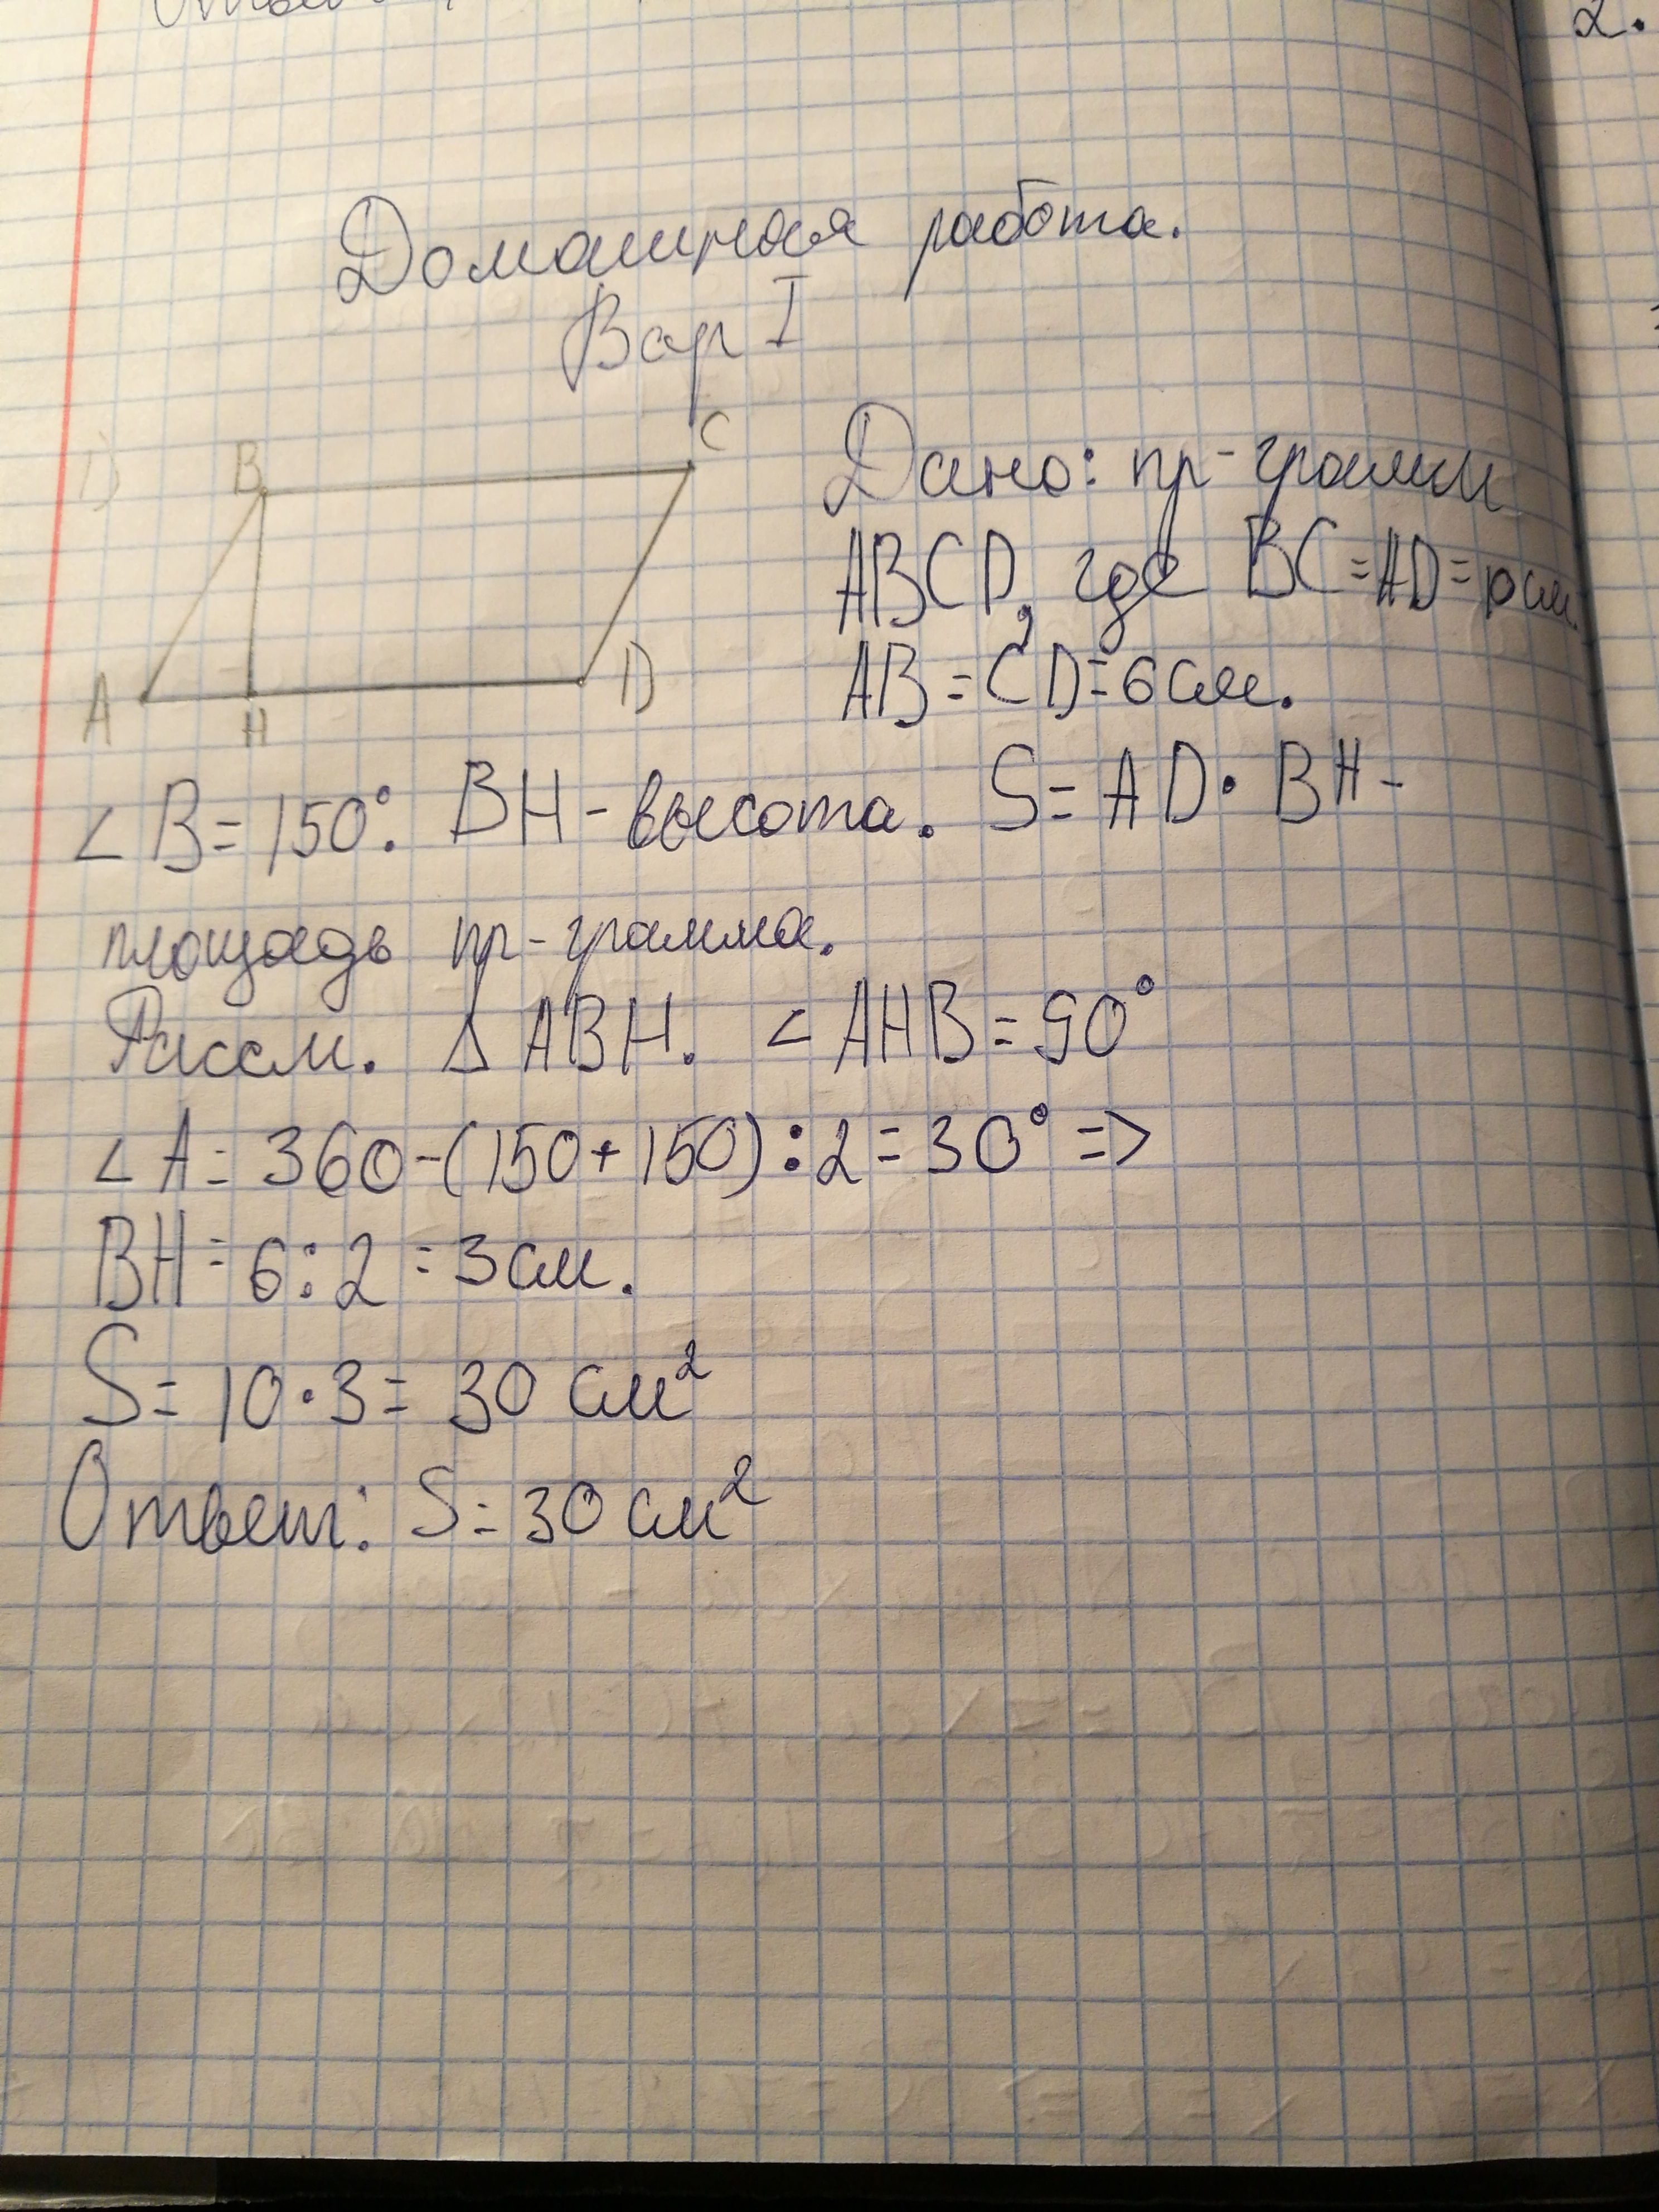 2.
Домашняя работа.
Вар I
1)
B
C
A
H
D
Дано: пр-грамм
ABCD, где BC=AD=10см.
AB=CD=6см.
∠B=150°. BH-высота. S=AD·BH-
площадь пр-грамма.
Рассм. Δ ABH. ∠AHB=90°
∠A=360-(150+150):2=30° =>
BH=6:2=3см.
S=10·3=30 см²
Ответ: S=30 см²